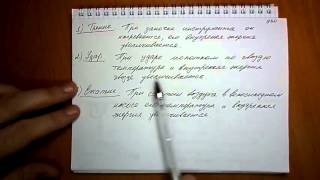 1) Трение При заточке инструментов он
нагревается, его внутренняя энергия
увеличивается.
2) Удар. При ударе молотком по гвоздю
температура и внутренняя энергия
гвоздя увеличивается
Сжатие При сжатии воздуха в велосипедном
насосе его температура и внутренняя
энергия увеличивается